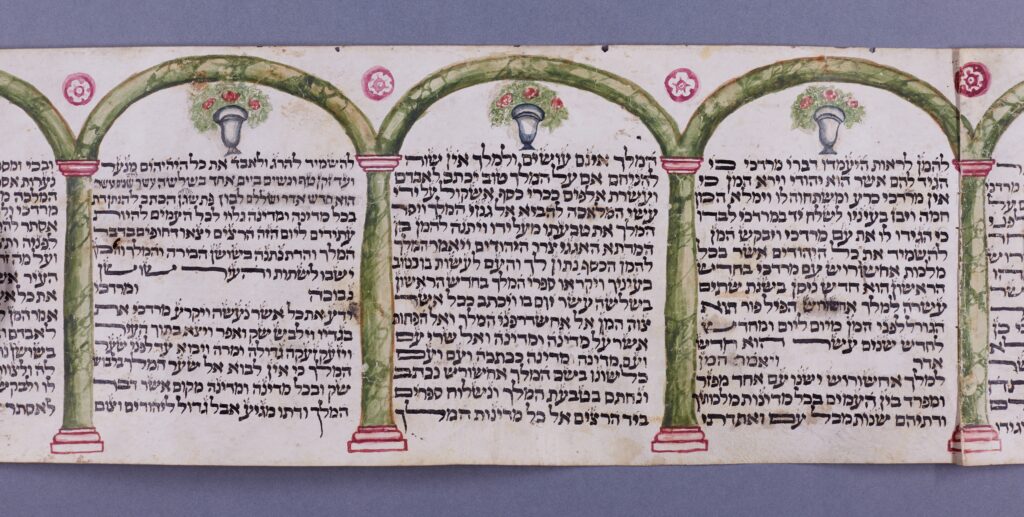 להמן לראות היעמדו דברי מרדכי כי
הגיד להם אשר הוא יהודי וירא המן כי
אין מרדכי כרע ומשתחוה לו וימלא המן
חמה ויבז בעיניו לשלח יד במרדכי לבדו
כי הגידו לו את עם מרדכי ויבקש המן
להשמיד את כל היהודים אשר בכל
מלכות אחשורוש עם מרדכי בחדש
הראשון הוא חדש ניסן בשנת שתים
עשרה למלך אחשורוש הפיל פור הוא
הגורל לפני המן מיום ליום ומחדש
לחדש שנים עשר הוא חדש
אדר ויאמר המן
למלך אחשורוש ישנו עם אחד מפזר
ומפרד בין העמים בכל מדינות מלכותך
ודתיהם שנות מכל עם ואת דתי
המלך אינם עושים ולמלך אין שוה
להניחם אם על המלך טוב יכתב לאבדם
ועשרת אלפים ככר כסף אשקול על ידי
עשי המלאכה להביא אל גנזי המלך ויסר
המלך את טבעתו מעל ידו ויתנה להמן בן
המדתא האגגי צרר היהודים ויאמר המלך
להמן הכסף נתון לך והעם לעשות בו כטוב
בעיניך ויקראו ספרי המלך בחדש הראשון
בשלשה עשר יום בו ויכתב ככל אשר
צוה המן אל אחשדרפני המלך ואל הפחות
אשר על מדינה ומדינה ואל שרי עם
ועם מדינה ומדינה ככתבה ועם ועם
כלשונו בשם המלך אחשורוש נכתב
ונחתם בטבעת המלך ונשלוח ספרים
ביד הרצים אל כל מדינות המלך
להשמיד להרג ולאבד את כל היהודים מנער
ועד זקן טף ונשים ביום אחד בשלשה עשר לחדש שנים עשר
הוא חדש אדר ושללם לבוז פתשגן הכתב להנתן דת
בכל מדינה ומדינה גלוי לכל העמים להיות
עתידים ליום הזה הרצים יצאו דחופים בדבר
המלך והדת נתנה בשושן הבירה והמלך והמן
ישבו לשתות והעיר שושן
נבוכה ומרדכי
ידע את כל אשר נעשה ויקרע מרדכי את
בגדיו וילבש שק ואפר ויצא בתוך העיר
ויזעק זעקה גדולה ומרה ויבוא עד לפני שער
המלך כי אין לבוא אל שער המלך בלבוש
שק ובכל מדינה ומדינה מקום אשר דבר
המלך ודתו מגיע אבל גדול ליהודים וצום
ובכי
נערות
המלכה
מרדכי
אסתר
לפניה
ועל מה
העיר
את כל
אמר המן
לאבדם
בשושן
לה
לו ולבקש
לאסתר